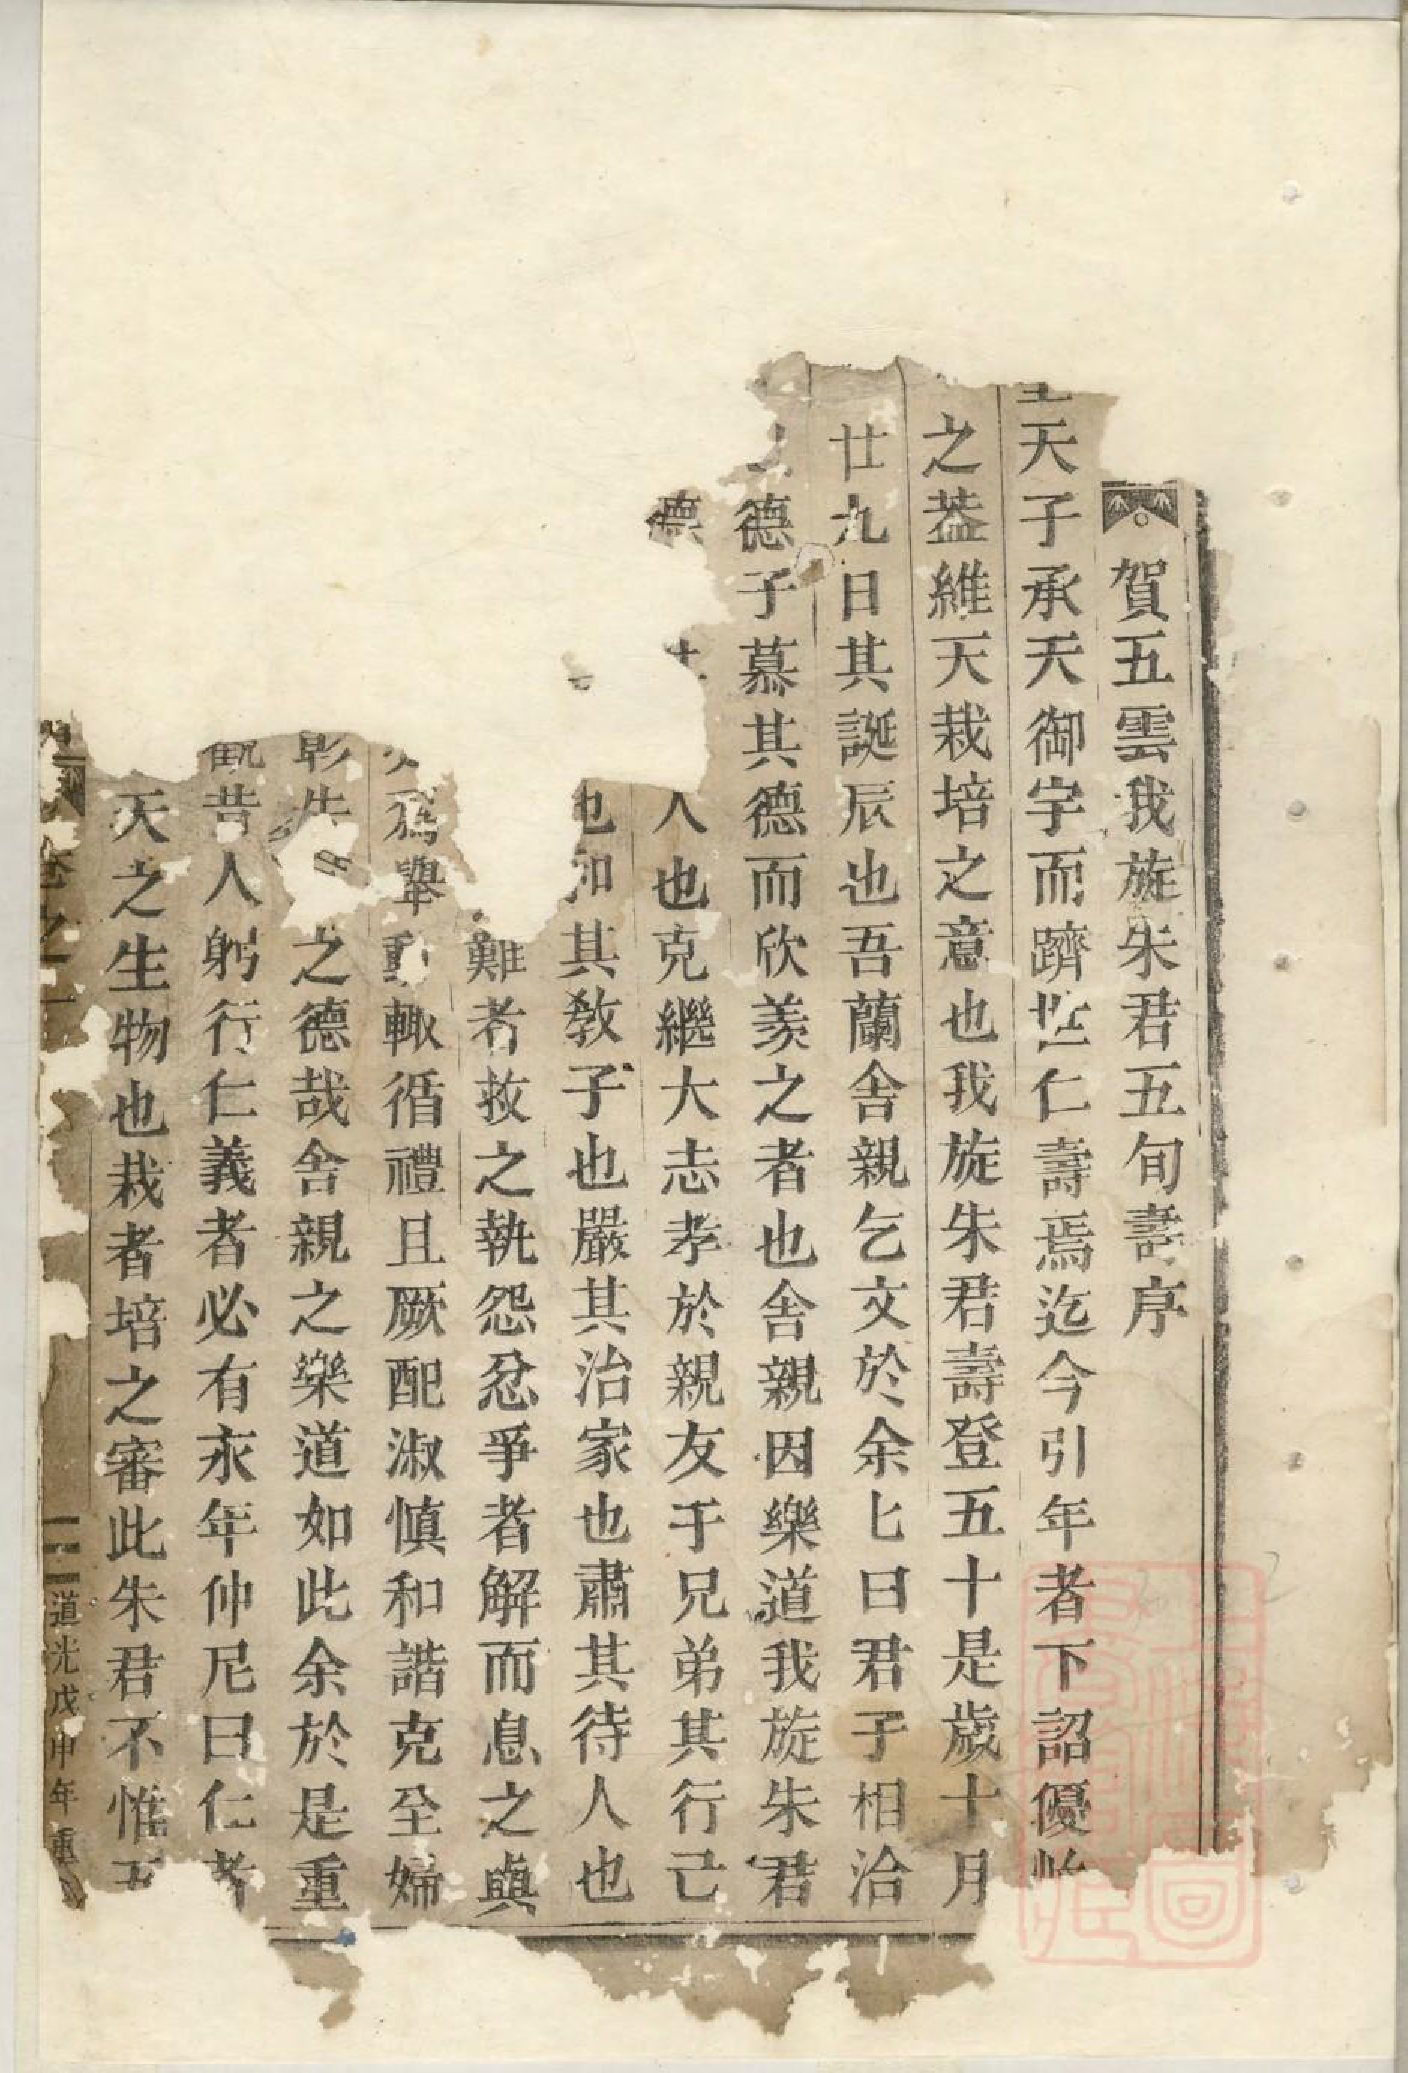 賀五雲我旋朱君五旬壽序
天子承天御宇而躋世仁壽焉迄今引年者下詔優
之葢維天栽培之意也我旋朱君壽登五十是歲十月
廿九日其誕辰也吾蘭舍親乞文於余匕曰君子相洽
德子慕其德而欣羨之者也舍親因樂道我旋朱君
德 人也克繼大志孝於親友于兄弟其行己
也和其教子也嚴其治家也肅其待人也
難者救之執怨忿爭者解而息之與
爲舉動輙循禮且厥配淑慎和諧克至婦
彰 之德哉舍親之樂道如此余於是重
觀昔人躬行仁義者必有永年仲尼曰仁者
天之生物也栽者培之審此朱君不惟五
卷之一 道光戊申年重